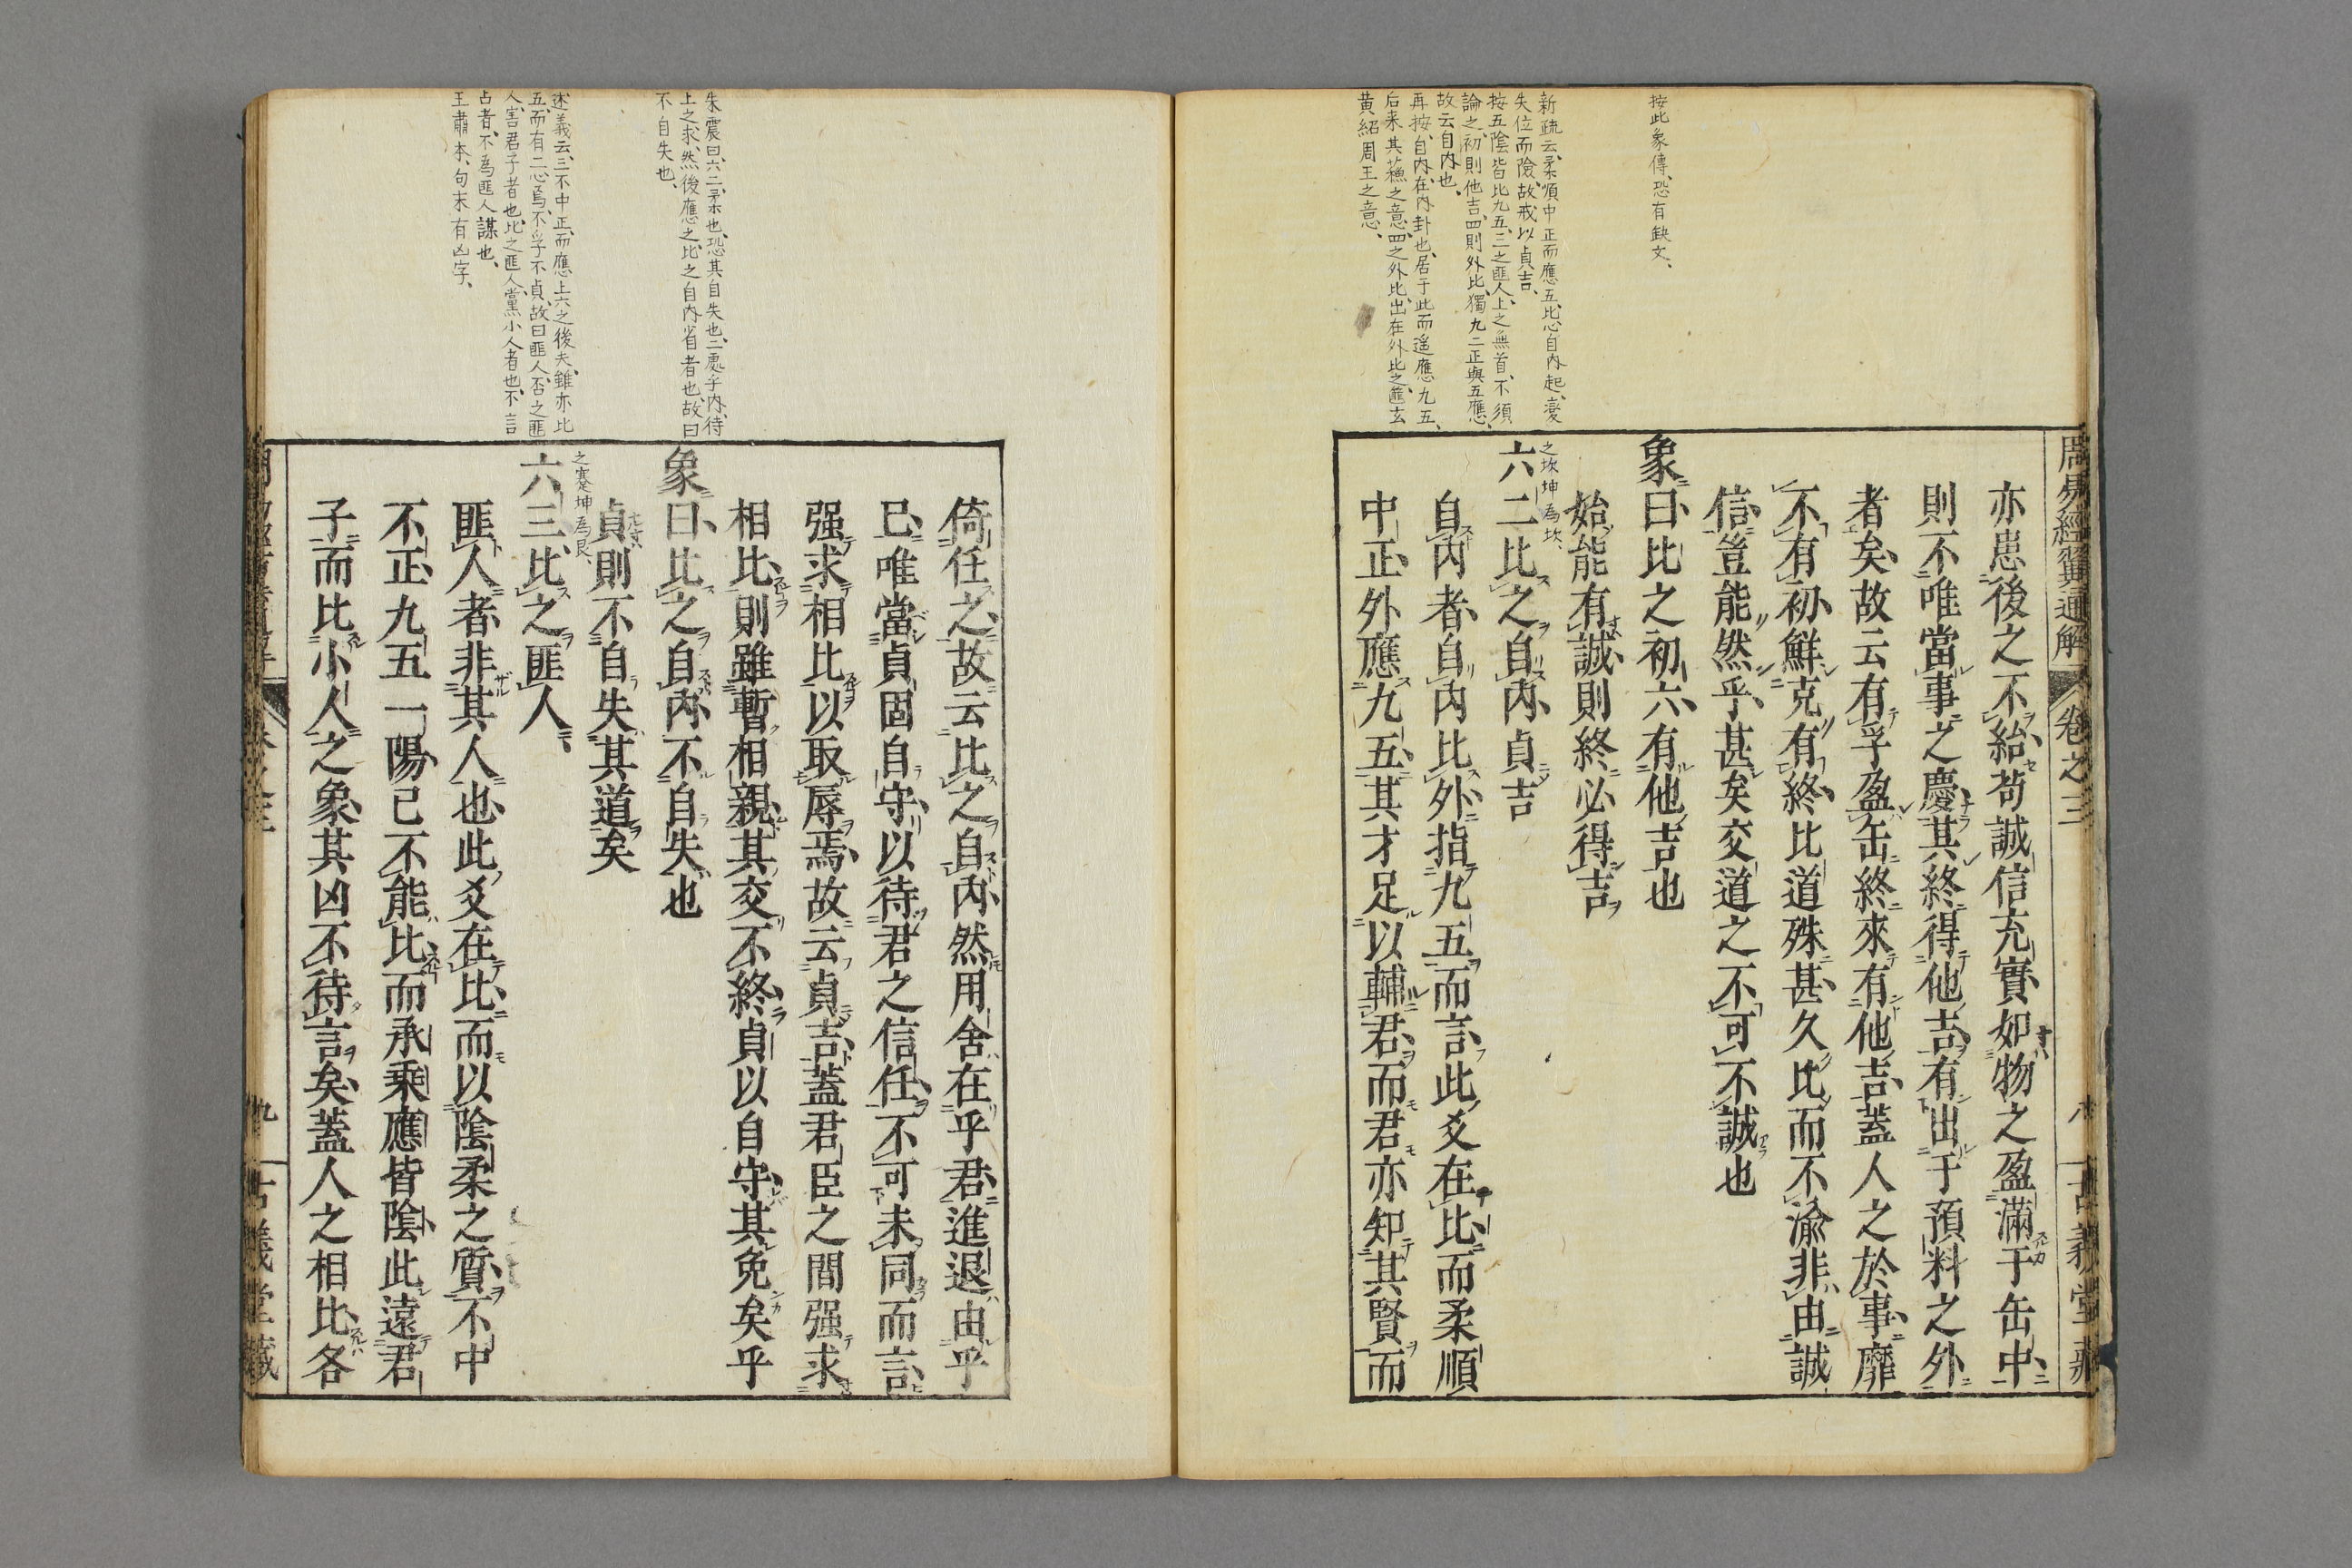 周易經翼通解
卷之三
八
古義堂藏
按此象傳、恐有缺文、
新疏云、柔順中正而應五、比心自内起、憂
失位而險、故戒以貞吉、
按五陰皆比九五、三之匪人、上之無首、不須
論之、初則他吉、四則外比、獨九二正與五應、
故云自内也、
再按、自内、在内卦也、居于此而遥應九五、
后来其蘓之意、四之外比、出在外比之、匪玄
黄紹周王之意、
亦患後之不紿苟誠信充實如物之盈滿于缶中
則不唯當事之慶其終得他吉有出于預料之外
者矣故云有孚盈缶終來有他吉蓋人之於事靡
不有初鮮克有終比道殊甚久比而不渝非由誠
信豈能然乎甚矣交道之不可不誠也
象曰比之初六有他吉也
始能有誠則終必得吉
之坎坤為坎、
六二比之自内貞吉
自内者自内比外指九五而言此爻在比而柔順
中正外應九五其才足以輔君而君亦知其賢而
朱震曰、六二、柔也、恐其自失也、二處乎内、待
上之求、然後應之、比之自内省者也、故曰
不自失也、
述義云、三不中正、而應上六之後夫、雖亦比
五、而有二心焉、不孚不貞、故曰匪人、否之匪
人、害君子者也、比之匪人、黨小人者也、不言
占者、不為匪人謀也、
王肅本、句末有凶字、
倚任之故云比之自内然用舍在乎君進退由乎
己唯當貞固自守以待君之信任不可未同而言
强求相比以取辱焉故云貞吉蓋君臣之間强求
相比則雖暫相親其交不終貞以自守其免矣乎
象曰比之自内不自失也
貞則不自失其道矣
之蹇坤為艮、
六三比之匪人
匪人者非其人也此爻在比而以陰柔之質不中
不正九五一陽已不能比而承乘應皆陰此遠君
子而比小人之象其凶不待言矣蓋人之相比各
九
古義堂藏